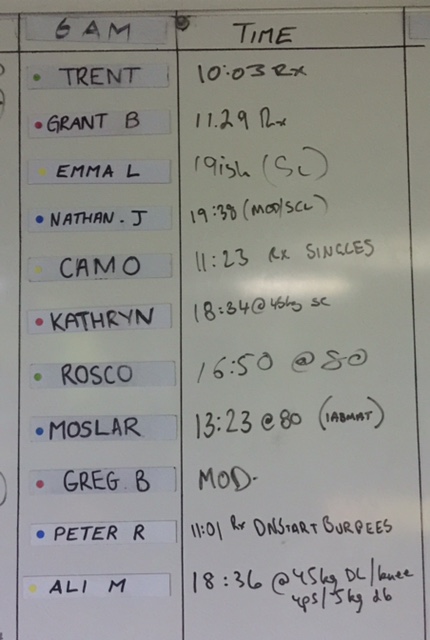 6 AM TIME
TRENT 10:03 Rx
GRANT B 11.29 Rx
EMMA L 19ish (SC)
NATHAN. J 19:38 (MOD/SCL)
CAMO 11:23 RX SINGLES
KATHRYN 18:34@45kg SC
ROSCO 16:50 @ 80
MOSLAR 13:23 @80 (1ABMAT)
GREG B MOD-
PETER R 11:01 Rx DNSTART BURPEES
ALI M 18:36 @45kg DL/knee
ups/15kg db